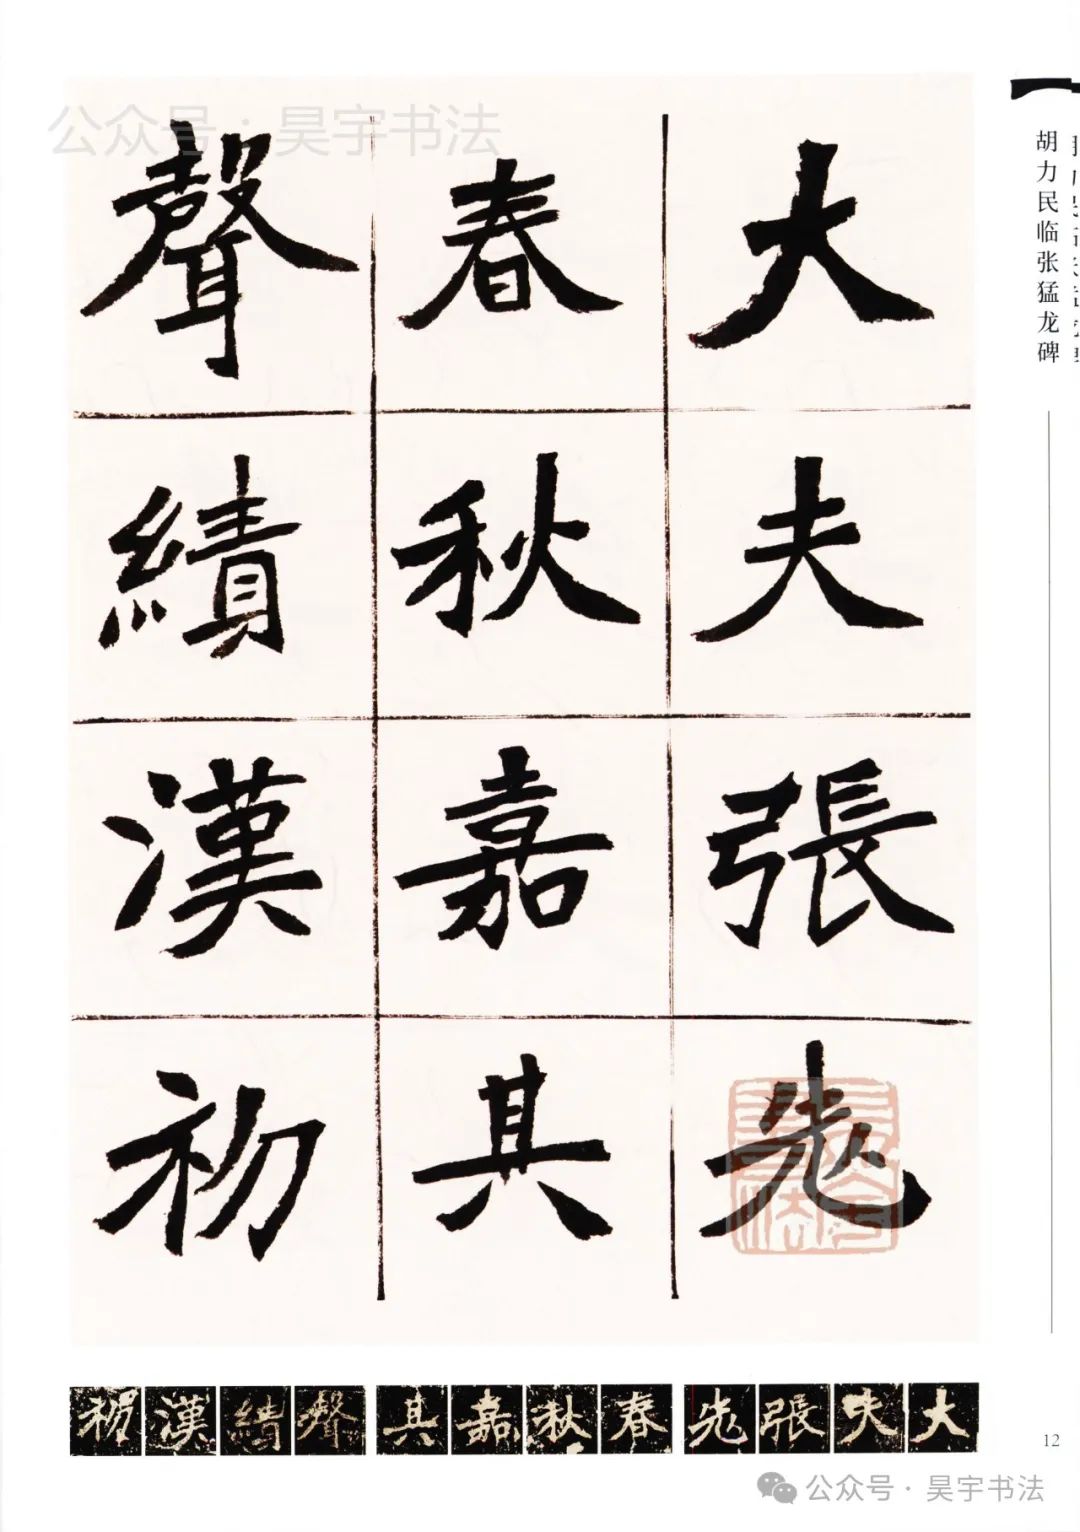 公众号·昊宇书法
胡力民临张猛龙碑
大夫張老
春秋嘉其
聲績漢初
大夫張老春秋嘉其聲績漢初
12
公众号·昊宇书法